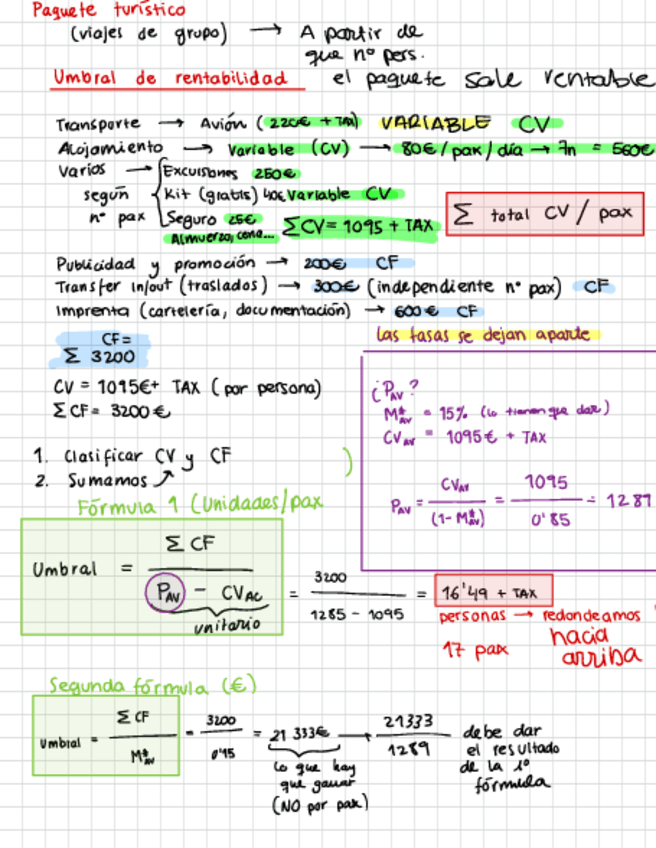 Paquete turístico
(viajes de grupo) → A partir de
que nº pers.
Umbral de rentabilidad el paquete sale rentable
Transporte → Avión (220€ + TAX) VARIABLE CV
Alojamiento → Variable (CV) → 80€/pax/día → 7n = 560€
Varios → Excursiones 250€
según Kit (gratis) 40€ Variable CV
nº pax Seguro 25€ ΣCV = 1095 + TAX
Almuerzo, cena...
Σ total CV / pax
Publicidad y promoción → 200€ CF
Transfer in/out (traslados) → 300€ (independiente nº pax) CF
Imprenta (cartelería, documentación) → 600€ CF
Las tasas se dejan aparte
CF =
Σ 3200
CV = 1095€ + TAX (por persona)
ΣCF = 3200€
¿P_AV?
M*_AV = 15% (lo tienen que dar)
CV_AV = 1095€ + TAX
P_AV = CV_AV / (1 - M*_AV) = 1095 / 0'85 = 1289
1. Clasificar CV y CF
2. Sumamos ↗
Fórmula 1 (Unidades/pax
)
Umbral = ΣCF / (P_AV - CV_AC) = 3200 / (1285 - 1095) = 16'49 + TAX
unitario
personas → redondeamos
17 pax hacia
arriba
Segunda fórmula (€)
Umbral = ΣCF / M*_AV = 3200 / 0'15 = 21 333€ → 21333 / 1289 debe dar
el resultado
de la 1º
fórmula
lo que hay
que ganar
(NO por pax)